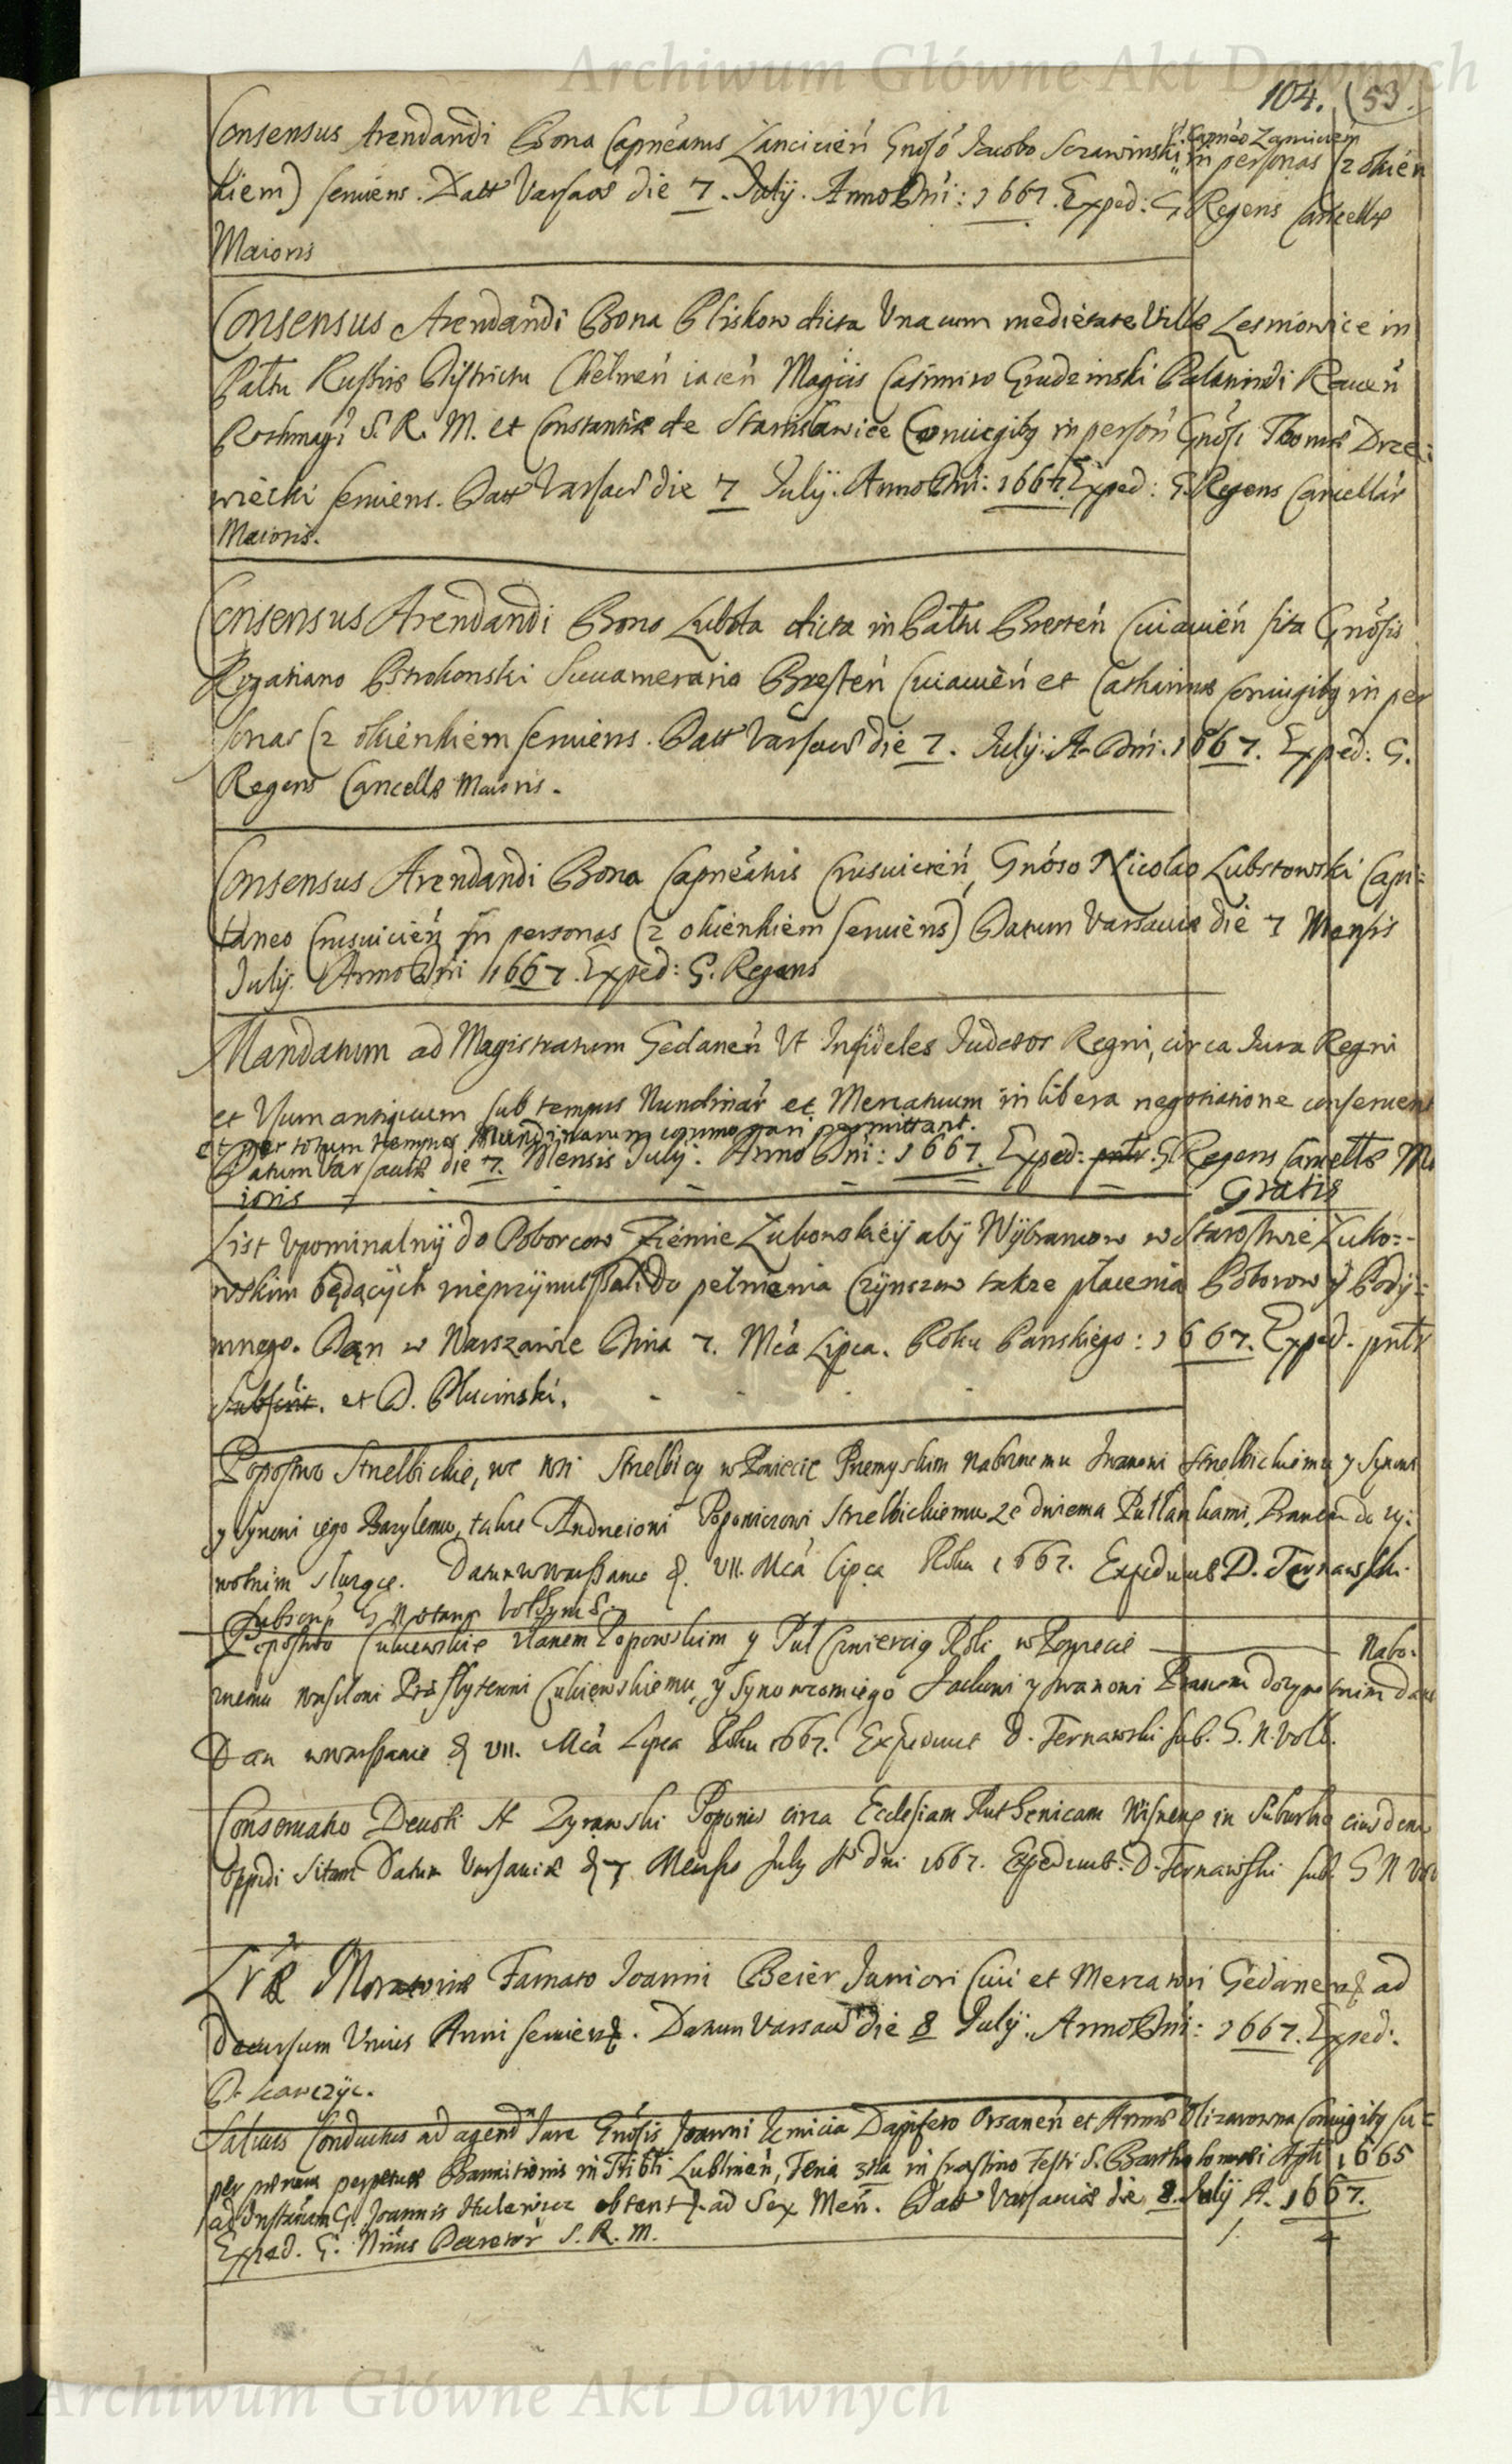 Archiwum Główne Akt Dawnych
104. 53.
Consensus Arendandi Bona Capnēatus Lancicień Gnoso Jacobo Szrawinski Capnēo Lancicień in personas (z okień
kiem) seruiens. Datt Varsaviæ die 7. July. Anno Dni: 1667. Exped: G. Regens Cancellæ
Maioris
Consensus Arendandi Bona Pliskow dicta Vna cum medietate Villæ Lesniowice in
Palttu Russiæ Districtu Chelmeń iaceń Magcis Casimiro Grudzinski Palatinidi Raueń
Rothmagi S. R. M. et Constantiæ de Stanisławice Coniugibg in persoń Gnosi Thomæ Drze:
wiecki seruiens. Datt Varsaviæ die 7 July. Anno Dni: 1667. Exped: G. Regens Cancellar
Maioris.
Consensus Arendandi Bona Lubota dicta in Palttu Bresteń Cuiauień sita Gnosis
Rogatiano Pstrokonski Succamerario Bresteń Cuiauień et Catharinæ Coniugibg in per
sonas (z okienkiem seruiens. Datt Varsaviæ die 7. July. A. Dni: 1667. Exped: G.
Regens Cancellæ Maioris.
Consensus Arendandi Bona Capnēatus Crusuicień, Gnoso Nicolao Lubstowski Capi:
taneo Crusuicień in personas (z okienkiem seruiens) Datum Varsauiæ die 7 Mensis
July. Anno Dni 1667. Exped: G. Regens
Mandatum ad Magistratum Gedaneń Vt Infideles Judæos Regni, circa Jura Regni
et Vsum antiquum sub tempus Nundinar et Mercatuum in libera negotiatione conseruent
et per totum tempus Nundinarum commorari permittant.
Datum Varsauiæ die 7. Mensis July. Anno Dni: 1667. Exped: G. Regens Cancellæ Ma
ioris Gratis
List Vpominalny do Poborcow Ziemie Łukowskiey aby Wybrancow w Starostwie Łuko:
wskim będących nieprzymuszali do pełnienia Czynszow takze płacenia Poborow y Pody:
mnego. Dan w Warszawie Dnia 7. Mca Lipca. Roku Panskiego: 1667. Exped. pntr
Subscrit. et D. Plucinski.
Popostwo Strelbickie, we wsi Strelbicy w Powiecie Przemyskim Naboznemu Iwanowi Strelbickiemu y Synowi
y Synowi iego Bazylemu, takze Andrzeiowi Popowiczowi Strzelbickiemu ze dwiema Pułłankami, Prawem do zy:
wotnim sluzące. Datum w Warszawie d. VII. Mca Lipca Roku 1667. Expediuit D. Tarnawski.
Subscrip G Notarg
Popostwo Cukiewskie z Łanem Popowskim y Puł Czwiercią Roli w Powiecie Nabo:
znemu Wasilowi Præsbyterowi Cukiewskiemu, y Synowi iego Jackowi y Iwanowi Prawem dozywotnim dane
Dan w Warszawie d VII. Mca Lipca Roku 1667. Expediuit D. Ternawski sub. S. N. Voll.
Conseruatio Deuoti H Zyrawski Poponis circa Ecclesiam Ruthenicam Wisnens in Suburbio eiusdem
Oppidi Sitam Datum Varsauiæ d 7 Mensis July Ao dni 1667. Expediuit D. Ternawski sub. S N Voll
Lræ Moratoriæ Famato Joanni Beier Juniori Ciui et Mercatori Gedanensi ad
Decursum Vnius Anni seruien. Datum Varsaviæ die 8 July. Anno Dni: 1667. Exped:
D. Ławczyc.
Saluus Conductus ad agend Jure Gnosis Joanni Kmicia Dapifero Orsaneń et Annæ Olizarowna Coniugibg Su=
per poenam perpetuæ Bannitionis in Tribli Lublineń, Feria 3tia in Crastino Festi S. Bartholomæi Apli 1665
ad Instanam G. Joannis Hulewicz obtent. ad Sex Meń. Datt Varsauiæ die 8. July A. 1667.
Exped. G. S. R. M.
Archiwum Główne Akt Dawnych